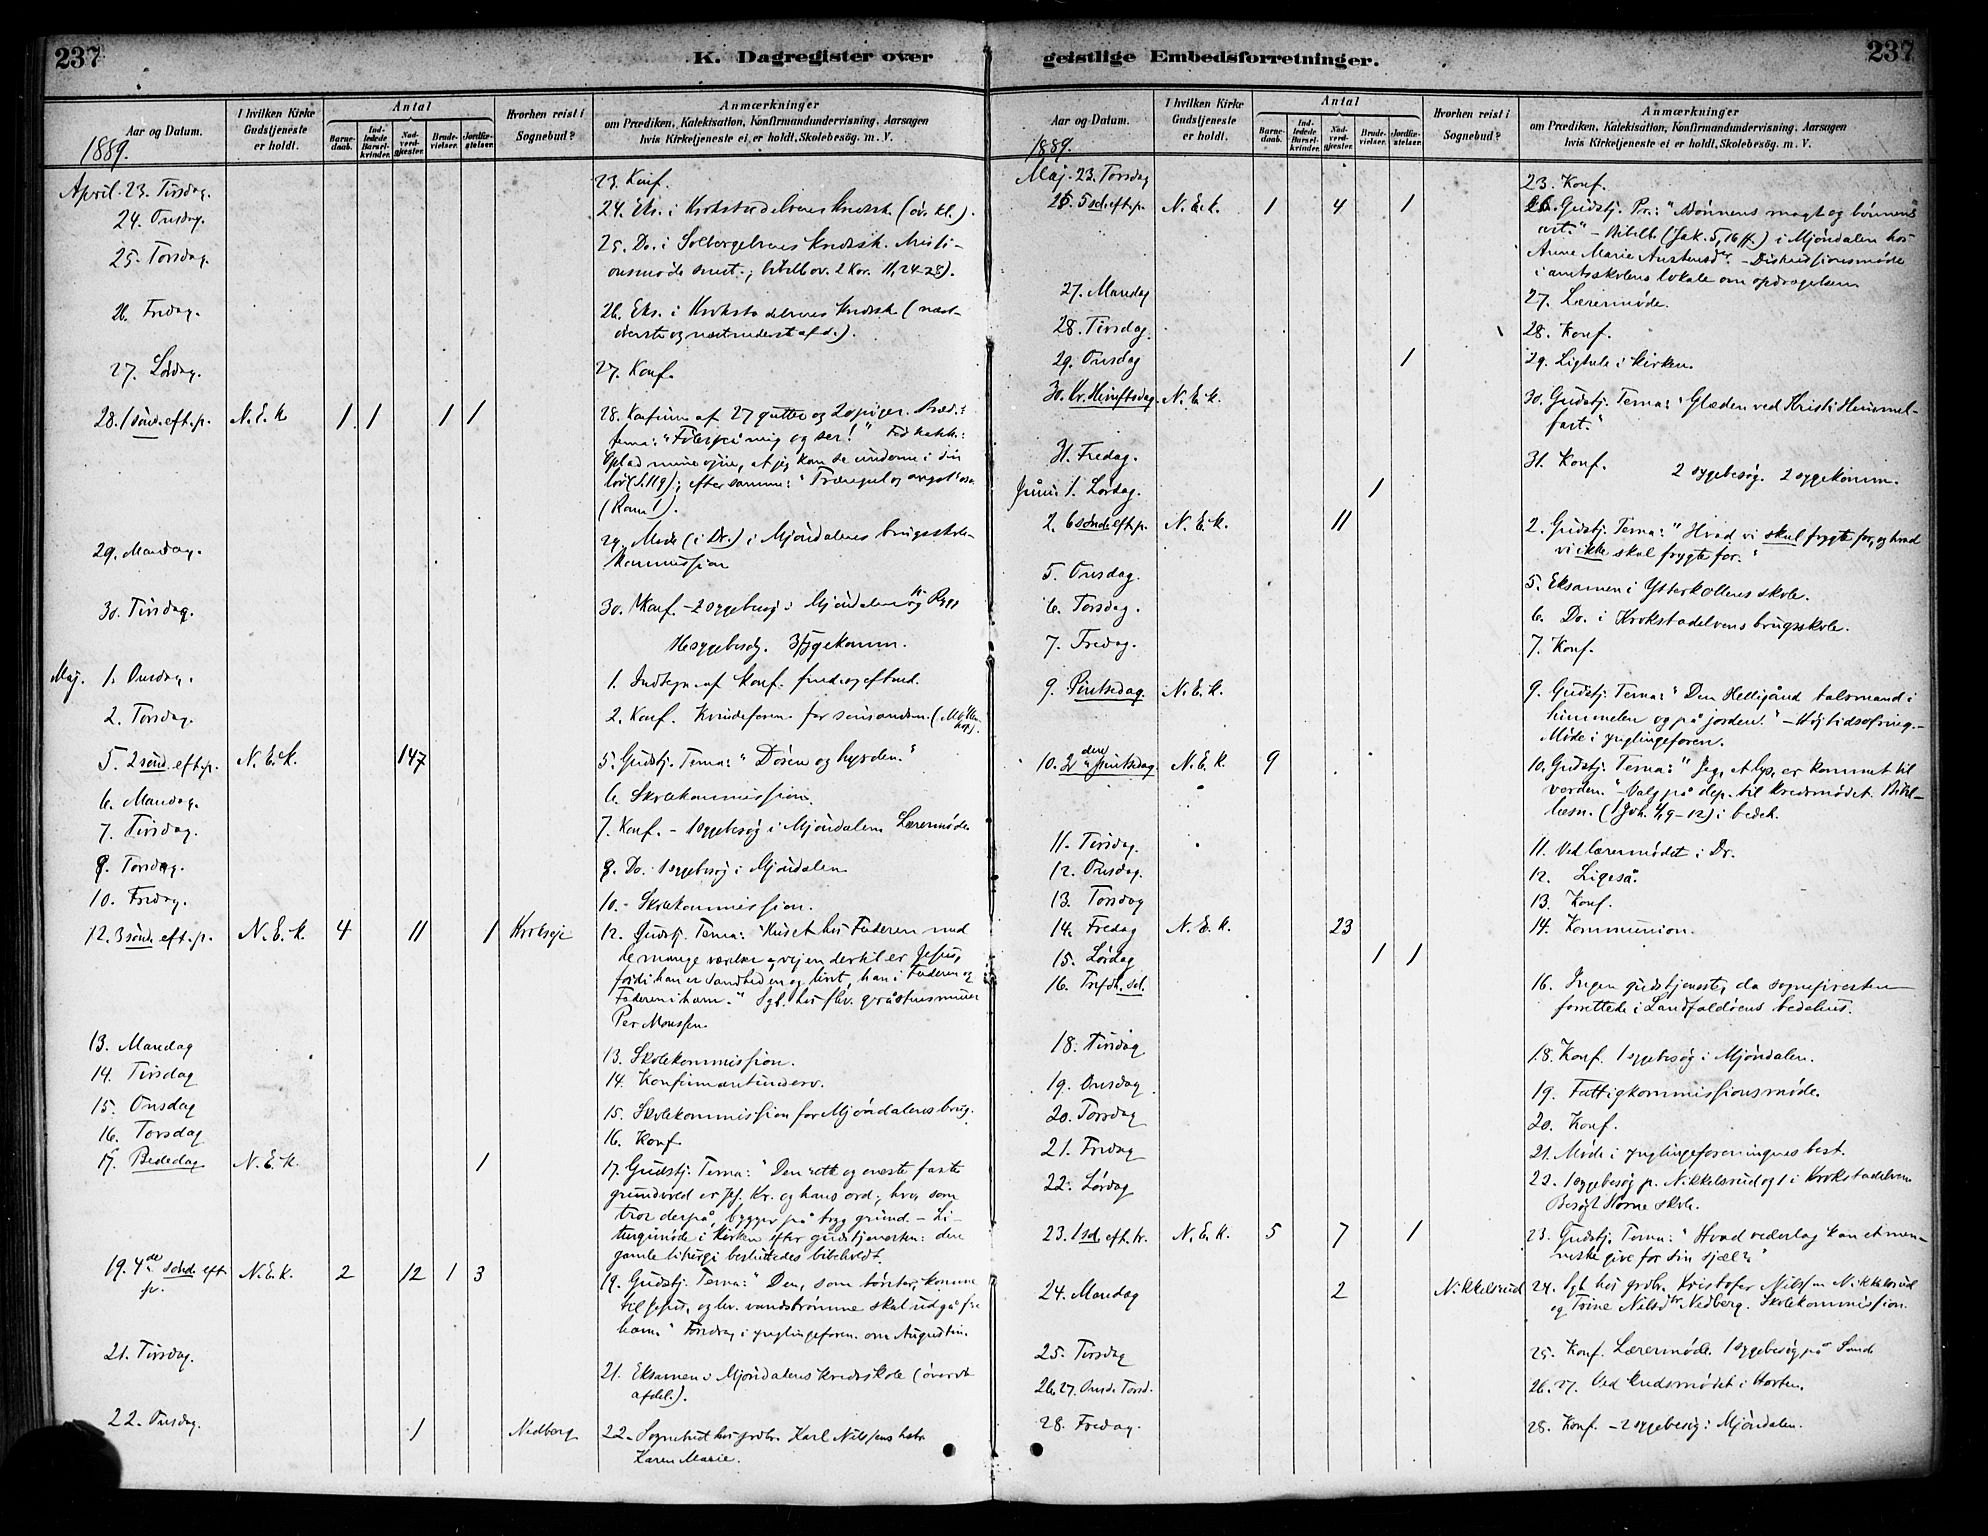 237
K. Dagregister over
Aar og Datum.
I hvilken Kirke
Gudstjeneste
er holdt.
Antal
Barne-
daab.
Ind-
ledede
Barsel-
kvinder.
Nad-
verd-
gjester.
Brude-
vielser.
Jordfæ-
stelser.
Hvorhen reist i
Sognebud?
Anmærkninger
om Prædiken, Katekisation, Konfirmandundervisning, Aarsagen
hvis Kirketjeneste ei er holdt, Skolebesøg. m. V.
1889.
April. 23. Tirsdag. 23. Konf.
24. Onsdag. 24. Eks. i Krokstadelvens kredssk. (øvr. kl.).
25. Torsdag. 25. Do. i Solbergelvens kredssk.
bibell. ov. 2 Kor. 11, 24-28).
26. Fredag. 26. Eks. i Krokstadelvens kredssk. (næst-
øverste og næstnederst afd.).
27. Lørdag. 27. Konf.
28. 1 sønd. eft. p. N. E. K 1 1 1 1 28. Konfirm. af 27 gutter og piger. Præd.:
tema: "Føler på mig og ser!" Før katek.:
Oplad mine øjne, at jeg kan se underne i din
lov (S. 119); efter samme:
(Rom 1).
29. Mandag. 29. Møde (i Dr.) i Mjøndalens brugsskole-
kommission
30. Tirsdag. 30. Konf. - 2 sygebesøg i Mjøndalen og Rygg
sygebesøg. 3 sygekomm.
Maj. 1. Onsdag. 1. Indtegn. af konf. form. og efterm.
2. Torsdag. 2. Konf. Kvindeforen. for
5. 2 sønd. eft. p. N. E. K. 147 5. Gudstj. Tema: "Døren og hyrden."
6. Mandag. 6. Skolekommission.
7. Tirsdag. 7. Konf. - 1 sygebesøg i Mjøndalen Lærermøde
9. Torsdag. 9. Do. 1 sygebesøg i Mjøndalen
10. Fredag. 10. - Skolekommission.
12. 3 sønd. eft. p. N. E. K. 4 11 1 Krokseje 12. Gudstj. Tema: "Huset hos Faderen med
de mange værelser, vejen dertil er Jesus,
fordi han er sandheden og livet, han i Faderen og
Faderen i ham." Sgb. hos
Per Monssen.
13. Mandag 13. Skolekommission.
14. Tirsdag 14. Konfirmantunderv.
15. Onsdag 15. Skolekommission for Mjøndalens brug.
16. Torsdag 16. Konf
17. Bededag N. E. K. 1 17. Gudstj. Tema: "Den rette og eneste faste
grundvold er Jes. Kr. og hans ord; hver som
tror derpå, bygger på tryg grund. - Li-
turgimøde i kirken efter gudstjenesten: den
gamle liturgi besluttedes bibeholdt.
19. 4de sønd. eft. p. N. E. K. 2 12 1 3 19. Gudstj. Tema: "Den, som tørster, komme
til Jesus, og lev. vandstrømme skal udgå fra
ham." Foredrag i ynglingeforen. om Augustin.
21. Tirsdag. 21. Eksamen i Mjøndalens kredsskole (øverste
afdel.).
22. Onsdag. 1 Nedberg 22. Sognebud hos grdbr. Karl Nilssens
Karen Marie.
237
geistlige Embedsforretninger.
Aar og Datum.
I hvilken Kirke
Gudstjeneste
er holdt.
Antal
Barne-
daab.
Ind-
ledede
Barsel-
kvinder.
Nad-
verd-
gjester.
Brude-
vielser.
Jordfæ-
stelser.
Hvorhen reist i
Sognebud?
Anmærkninger
om Prædiken, Katekisation, Konfirmandundervisning, Aarsagen
hvis Kirketjeneste ei er holdt, Skolebesøg. m. V.
1889.
Maj. 23. Torsdag 23. Konf.
26. 5 sd. eft. p. N. E. K. 1 4 1 26. Gudstj. Pr.: "Bønnens magt og bønnens
art." - Bibell. (Jak. 5, 16 ff.) i Mjøndalen hos
Anne Marie - Diskussionsmøde
i amtsskolens lokale om opdragelsen
27. Mandag 27. Lærermøde.
28. Tirsdag. 28. Konf.
29. Onsdag 1 29. Ligtale i kirken.
30. Kr. Himftsdag. N. E. K. 30. Gudstj. Tema: "Glæden ved Kristi Himmel-
fart."
31. Fredag. 31. Konf. 2 sygebesøg. 2 sygekomm.
Juni. 1. Lørdag. 1
2. 6 sønd. eft. p. N. E. K. 11 2. Gudstj. Tema: "Hvad vi skal frygte for, og hvad
vi ikke skal frygte for."
5. Onsdag. 5. Eksamen i Ytterkollens skole.
6. Torsdag. 6. Do. i Krokstadelvens brugsskole.
7. Fredag. 7. Konf.
9. Pintsedag N. E. K. 9. Gudstj. Tema: "Den Helligånd talsmand i
himmelen og på jorden." - Højtidsofring. -
Møde i ynglingeforen.
10. 2den pintsedag. N. E. K. 9 10. Gudstj. Tema: "Jeg, et lys, er kommet til
verden." - Valg på dep. til kredsmødet. Bibel-
læsn. (1 Joh. 4, 9-12) i bedeh.
11. Tirsdag. 11. Ved lærermødet i Dr.
12. Onsdag. 12. Ligeså.
13. Torsdag 13. Konf.
14. Fredag N. E. K. 23 14. Kommunion.
15. Lørdag 1 1
16. Tref. sd. 16. Ingen gudstjeneste, da sognepresten
forrettede i Landfaldøens bedehus.
18. Tirsdag 18. Konf. 1 sygebesøg i Mjøndalen.
19. Onsdag 19. Fattigkommissionsmøde.
20. Torsdag 20. Konf.
21. Fredag 21. Møde i ynglingeforeningens best.
22. Lørdag 22. 1 sygebesøg p. Nikkelsrud og 1 i Krokstadelven
Besøgt Horne skole.
23. 1 sd. eft. tr. N. E. K. 5 7 1 23. Gudstj. Tema: "Hvad vederlag kan et men-
neske give for sin sjæl?"
24. Mandag 2 Nikkelsrud 24. Sgb. hos grdbr. Kristofer Nilssen Nikkelsrud
og Trine Nilsdtr Nedberg. Skolekommission
25. Tirsdag 25. Konf. Lærermøde. 1 sygebesøg på Sande
26. 27. Onsd. Torsd. 26. 27. Ved kredsmødet i Horten.
28. Fredag. 28. Konf. - 2 sygebesøg i Mjøndalen.